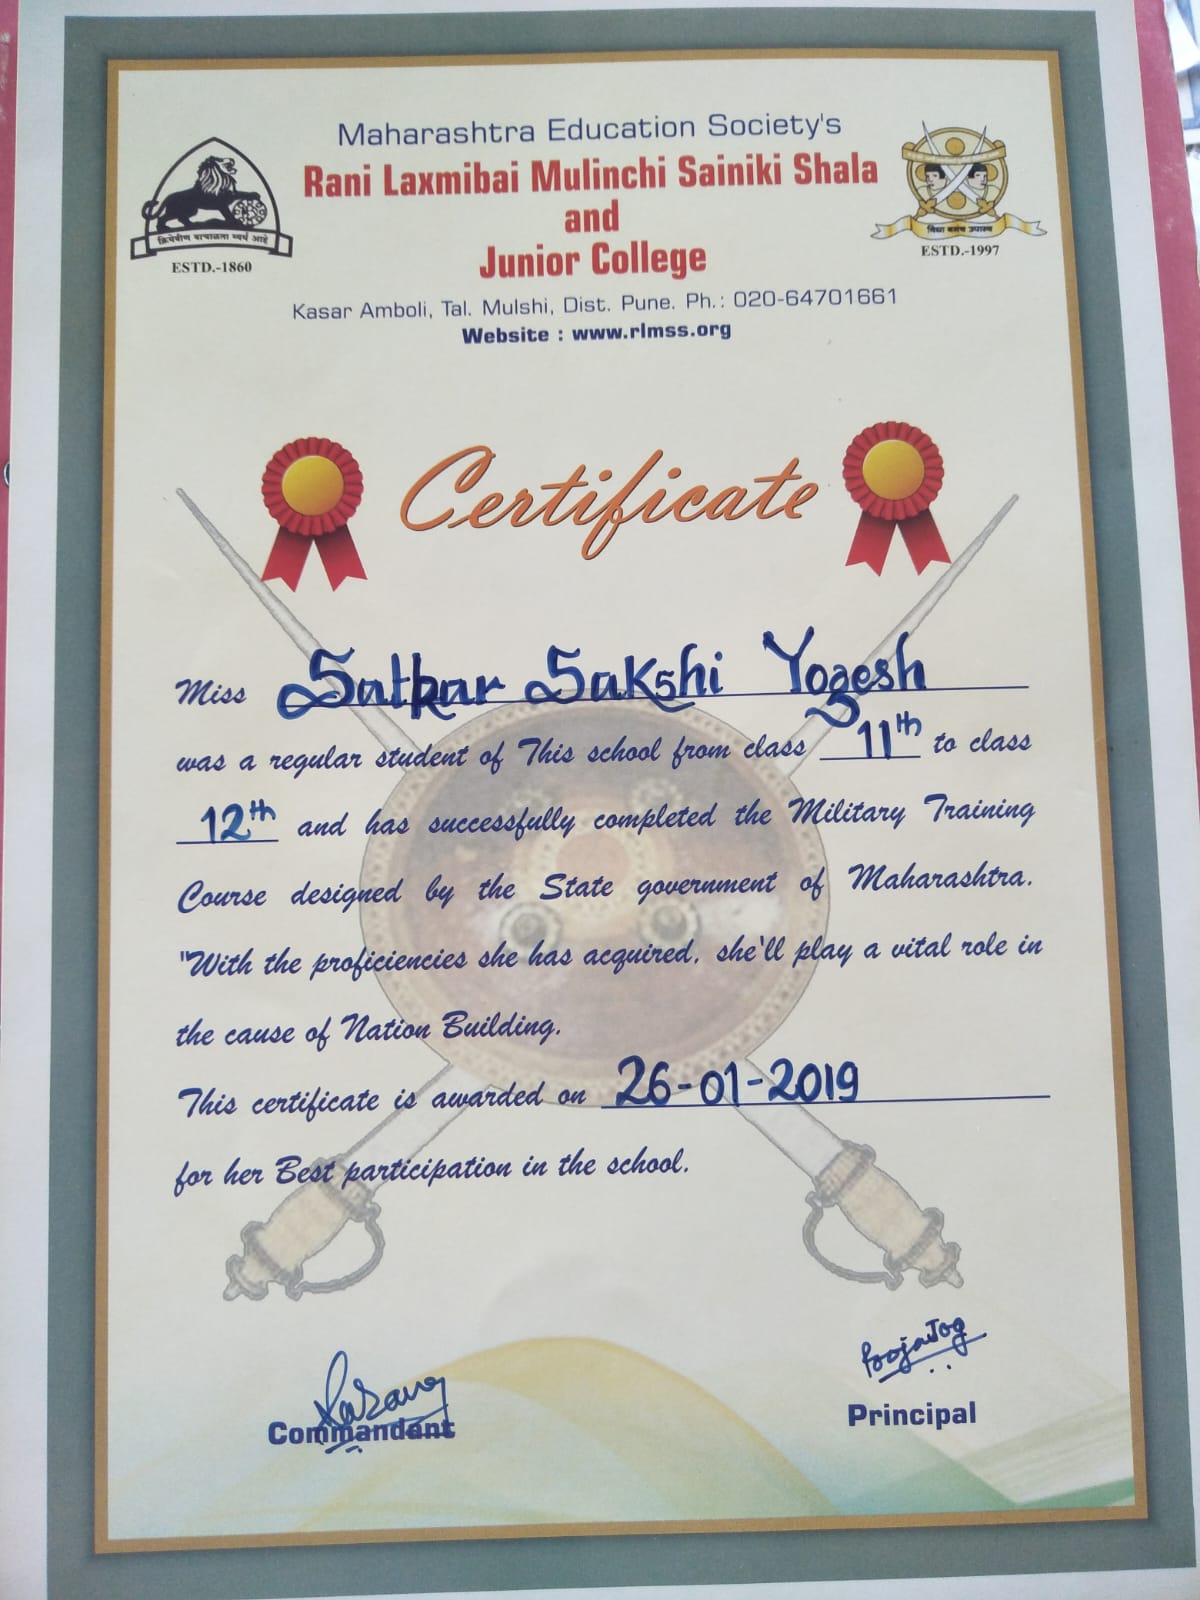 Maharashtra Education Society's
Rani Laxmibai Mulinchi Sainiki Shala
and
Junior College
क्रियेवीण वाचाळता व्यर्थ आहे
ESTD.-1860
ESTD.-1997
Kasar Amboli, Tal. Mulshi, Dist. Pune. Ph.: 020-64701661
Website : www.rlmss.org
Certificate
Miss Satkar Sakshi Yogesh
was a regular student of This school from class 11th to class
12th and has successfully completed the Military Training
Course designed by the State government of Maharashtra.
"With the proficiencies she has acquired, she'll play a vital role in
the cause of Nation Building.
This certificate is awarded on 26-01-2019
for her Best participation in the school.
PoojaJog
Commandant
Principal